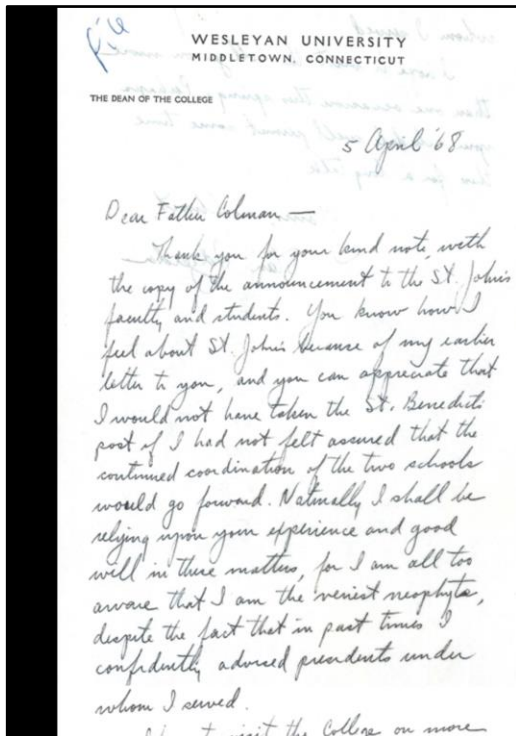 file
WESLEYAN UNIVERSITY
MIDDLETOWN, CONNECTICUT
THE DEAN OF THE COLLEGE
5 April '68
Dear Father Colman —
Thank you for your kind note, with
the copy of the announcement to the St. John's
faculty and students. You know how I
feel about St. John's because of my earlier
letter to you, and you can appreciate that
I would not have taken the St. Benedict's
post if I had not felt assured that the
continued coordination of the two schools
would go forward. Naturally I shall be
relying upon your experience and good
will in these matters, for I am all too
aware that I am the veriest neophyte,
despite the fact that in past times I
confidently advised presidents under
whom I served.
visit the College on more